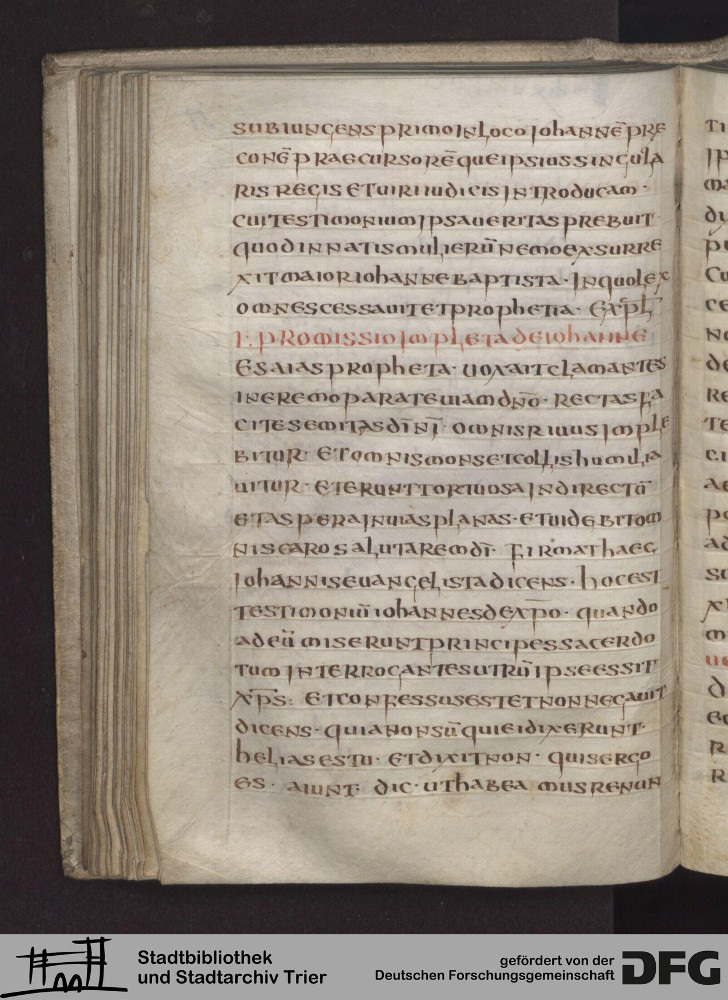 subiungens primo in loco iohannē pre
conē praecursorē que ipsius singula
ris regis et uiri iudicis introducam·
cui testimonium ipsa ueritas prebuit
quod in natis mulierū nemo exsurre
xit maior iohanne baptista· in quo lex
omnes cessauit et prophetia· expł
I. promissio impleta de iohanne
esaias propheta· uox ait clamantes
in eremo parate uiam dn̄o· rectas fa
cite semitas dīnī· omnis riuus imple
bitur· et omnis mons et collis humilia
uitur· et erunt tortuosa in directū
et aspera in uias planas· et uidebit om
nis caro salutarem dī· firmat haec
iohannis euangelista dicens· hoc est
testimoniū iohannes de xp̄o· quando
ad eū miserunt principes sacerdo
tum interrogantes utrū ipse essit
xp̄s: et confessus est et non negauit
dicens· quia non sū qui ei dixerunt·
helias es tu· et dixit non· quis ergo
es· aiunt· dic· ut habeamus renun
Stadtbibliothek
und Stadtarchiv Trier
gefördert von der
Deutschen Forschungsgemeinschaft
DFG